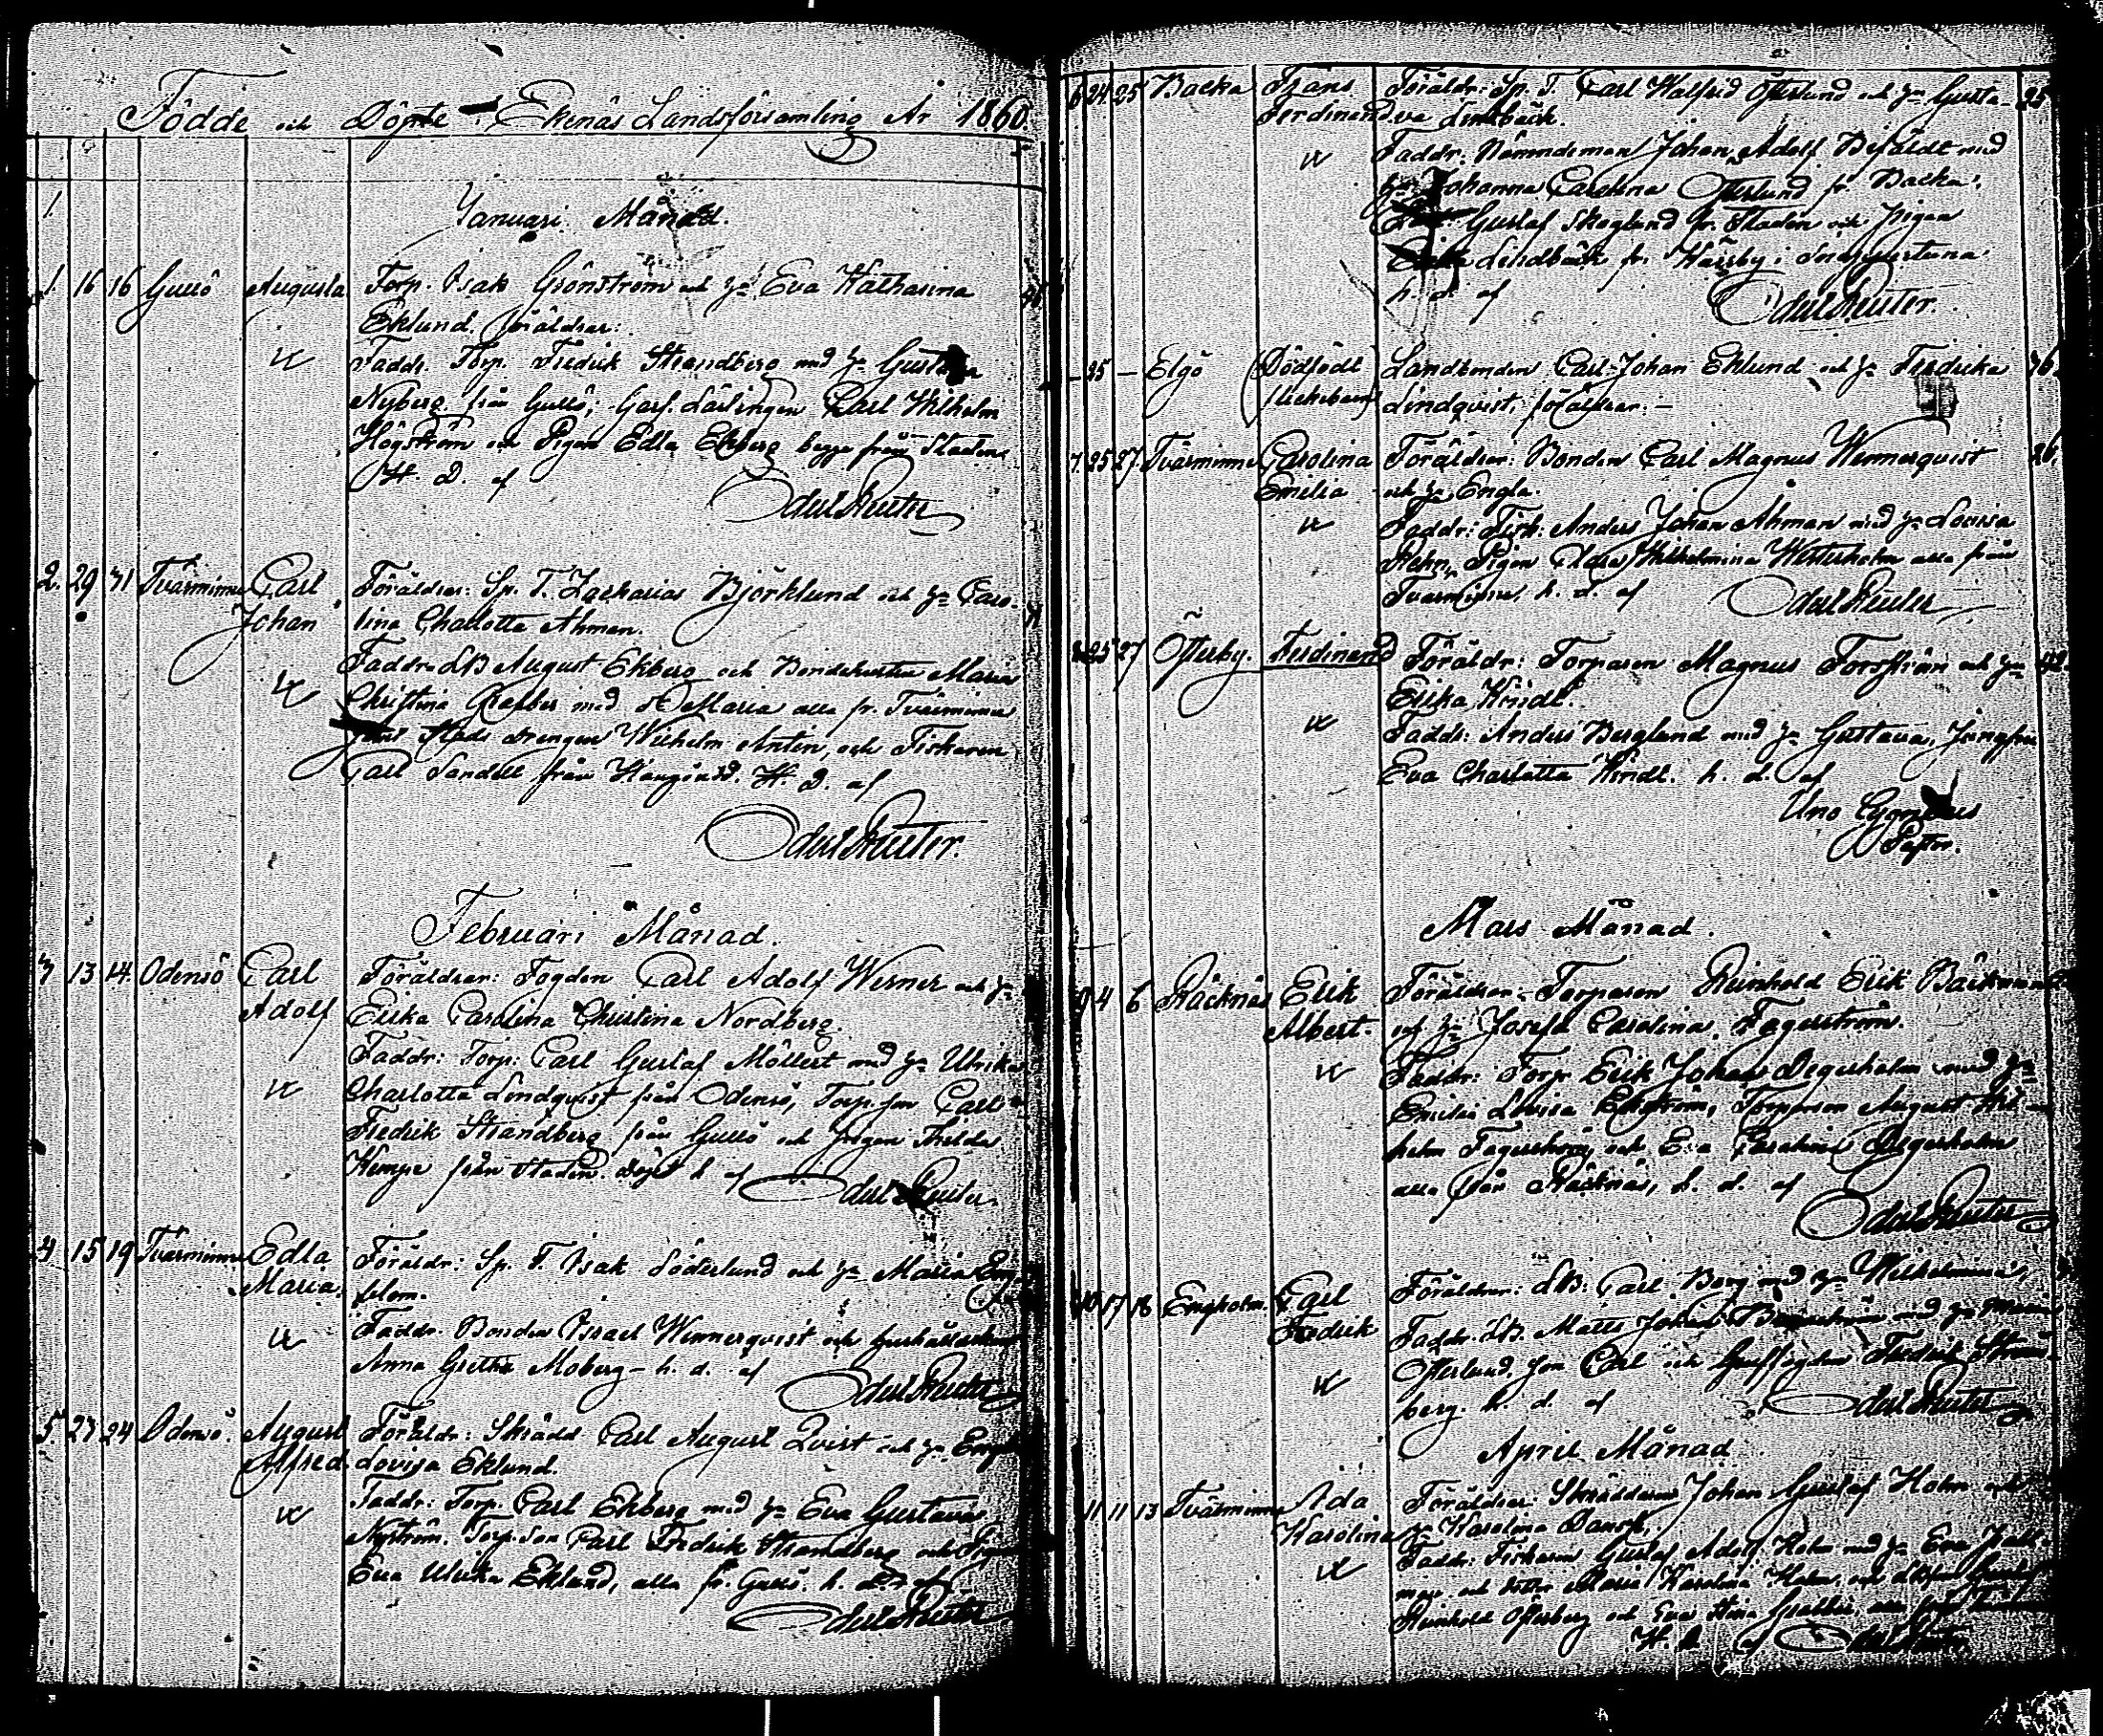 Födde och Döpte i Ekenäs Landsförsamling År 1860.
1.
Januari Månad.
1. 16 16 Gullö Augusta Torp. Isak Grönström och h:u Eva Katharina
Eklund. föräldrar:
Faddr. Torp. Fredrik Strandberg med h:u Gustava
Nyberg från Gullö, Garf. Lärlingen Carl Wilhelm
Högström och Pigan Edla Ekberg begge från Staden.
H. D. af
Odert Reuter
2. 29 31 Tvärminne Carl Föräldrar: Sp. T. Zacharias Björklund och h:u Caro-
Johan lina Charlotta Åhman.
Faddr. LB August Ekberg och Bondehustrun Maria
Christina med d. Maria alla fr. Tvärminne
drengen Wilhelm Antin, och Fiskaren
Carl Sandell från Hangöudd. H. D. af
Odert Reuter.
Februari Månad.
3 13 14. Odensö Carl Föräldrar: Fogden Carl Adolf Werner och h:u
Adolf Erika Carolina Christina Nordberg.
Faddr: Torp: Carl Gustaf Möllert med h:u Ulrika
Charlotta Lindqvist från Odensö, Torp. son Carl
Fredrik Strandberg från Gullö och pigan Hilda
Kempe från Staden. döpt h. af
Odert Reuter.
4 15 19 Tvärminne Edla Föräldr: Sp. T. Isak Söderlund och h:u Maria
Maria. blom.
Faddr. Bonden Israel Wennerqvist och hushållerskan
Anna Gretha Moberg – h. d. af
Odert Reuter
5 23 24 Odensö. August Föräldr: Skrädd Carl August Qvist och h:u
Alfred. Lovisa Eklund.
Faddr: Torp. Carl Ekberg med h:u Eva Gustava
Nyström. Torp. son Carl Fredrik Strandberg och Pigan
Eva Ulrika Eklund, alla fr. Gullö. h. d. af
Odert Reuter
6 24 25 Backa Frans Föräldr: Sp. T. Carl Walfrid Österlund och h:u Gusta- 25
Ferdinand va Lindbäck.
Faddr. Nämndeman Johan Adolf Bifäldt med
h:u Johanna Carolina Österlund fr. Backa.
Gustaf Skoglund fr. Staden och Pigan
Lindbäck fr. i
h. d. af
Odert Reuter.
– 25 – Elgö (Dödfödt Landbonden Carl Johan Eklund och h:u Fredrika 36.
flickebarn) Lindqvist, föräldrar. –
7. 25 27 Tvärminne Carolina Föräldrar: Bonden Carl Magnus Wennerqvist 26.
Emilia och h:u Engla.
Faddr: Fisk. Anders Johan Åhman med h:u Lovisa
Rehn, Pigan Clara Wilhelmina Westerholm alla från
Tvärminne, h. d. af Odert Reuter
8 25 27 Österby. Ferdinand Föräldr: Torparen Magnus Forsström och h:u
Erika Windt.
Faddr: Anders Berglund med h:u Gustava, Jungfru
Eva Charlotta Windt. h. d. af
Uno Cygnæus
Pastor.
Mars Månad.
9 4 6 Räcknäs Erik Föräldrar: Torparen Reinhold Erik Bäckman
Albert. och h:u Josefa Carolina Fagerström.
Faddr: Torp Erik Johan Degerholm med h:u
Emilia Lovisa Ekström, Torparson August Wil-
helm Fagerström och Eva Carolina Degerholm
alla från Räcknäs, h. d. af
Odert Reuter
10 17 18 Engholm. Carl Föräldrar: LB: Carl Berg med h:u Wilhelmina,
Fredrik Faddr: LB. Matts Johan med h:u
Österlund, son Carl och Fredrik
berg. h. d. af Odert Reuter
April Månad
11 11 13 Tvärminne Ada Föräldrar: Skräddaren Johan Gustaf Holm och
Karolina h:u Karolina Dansk.
Faddr: Fiskaren Gustaf Adolf Holm med h:u Eva
och dotter Maria Karolina Holm,
Reinhold Österberg och Eva Stina
H. d. af Odert Reuter